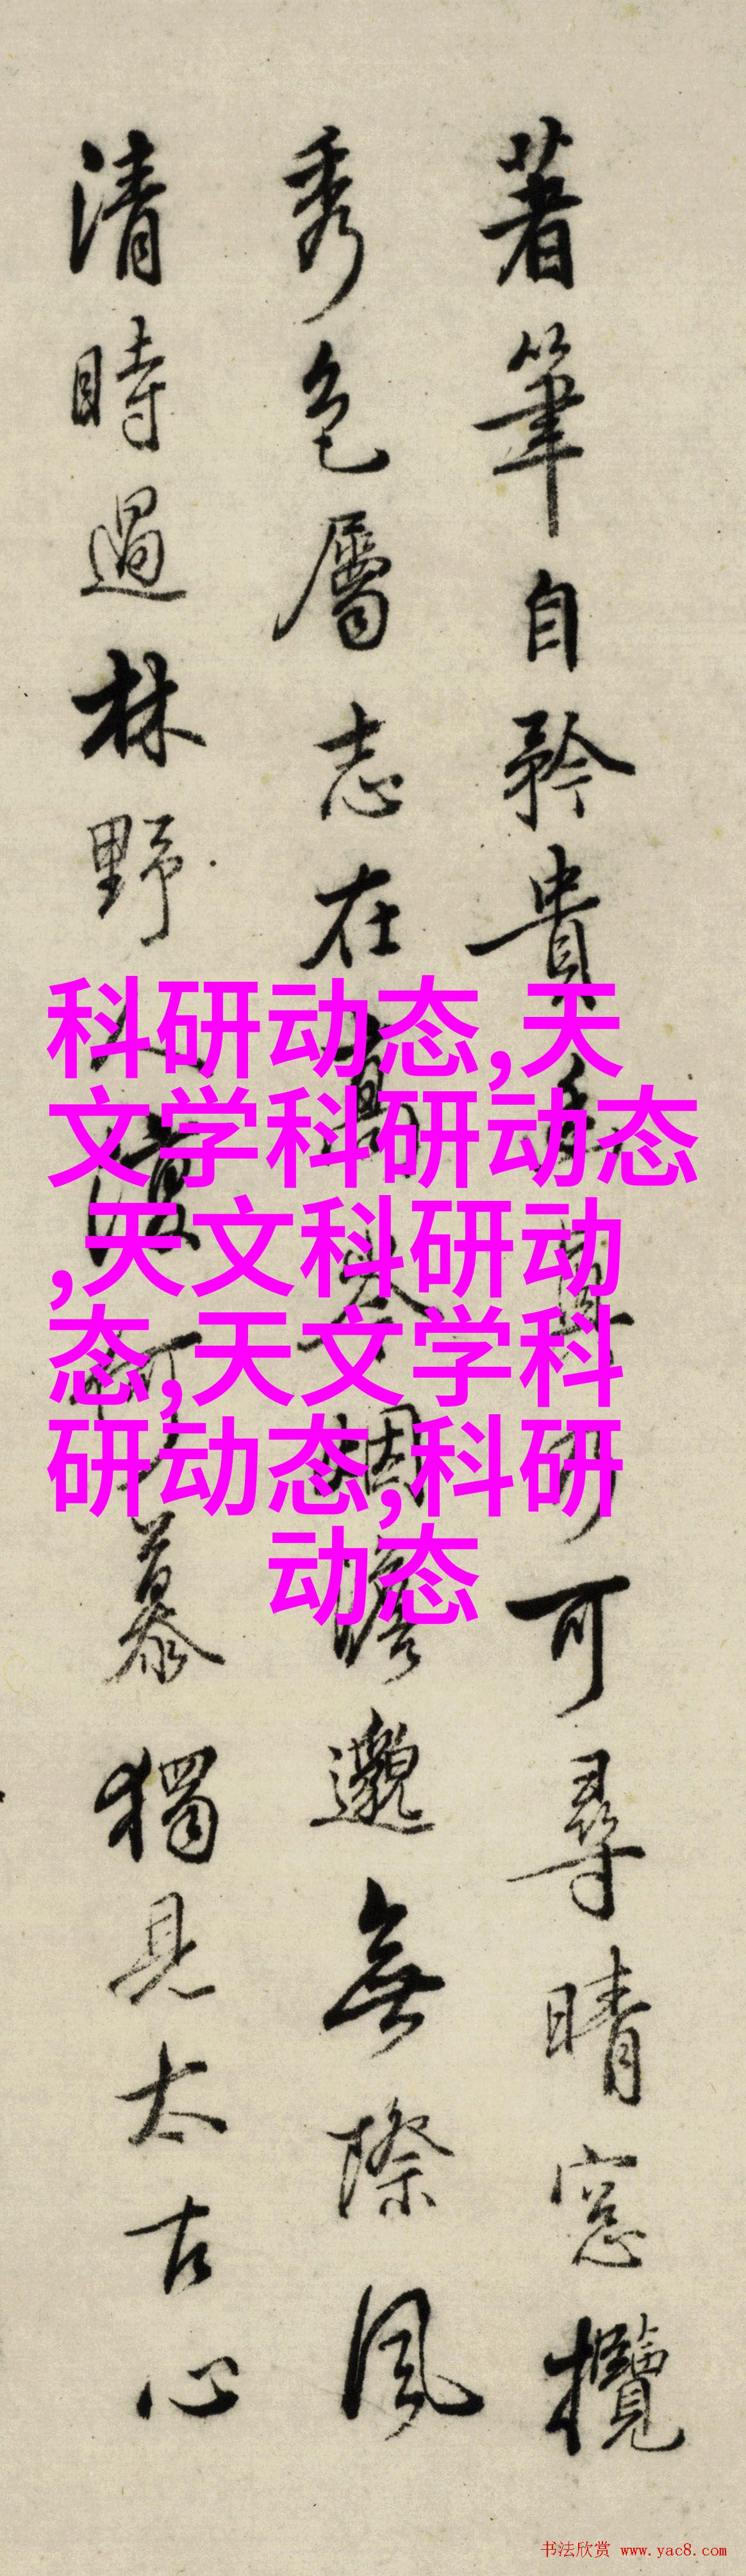 著筆自矜貴
可尋晴窓攬
秀色屬志在高
烟瞻邈無際風
清時過林野
慕獨見太古心
科研动态,天
文学科研动态
,天文科研动
态,天文学科
研动态,科研
动态
书法欣赏 www.yac8.com